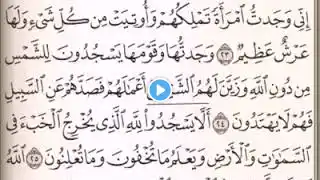 إِنِّى وَجَدتُّ ٱمْرَأَةً تَمْلِكُهُمْ وَأُوتِيَتْ مِن كُلِّ شَىْءٍ وَلَهَا
عَرْشٌ عَظِيمٌ ٢٣ وَجَدتُّهَا وَقَوْمَهَا يَسْجُدُونَ لِلشَّمْسِ
مِن دُونِ ٱللَّهِ وَزَيَّنَ لَهُمُ أَعْمَٰلَهُمْ فَصَدَّهُمْ عَنِ ٱلسَّبِيلِ
فَهُمْ لَا يَهْتَدُونَ ٢٤ أَلَّا يَسْجُدُوا۟ لِلَّهِ ٱلَّذِى يُخْرِجُ ٱلْخَبْءَ فِى
ٱلسَّمَٰوَٰتِ وَٱلْأَرْضِ وَيَعْلَمُ مَا تُخْفُونَ وَمَا تُعْلِنُونَ ٢٥ ٱللَّهُ